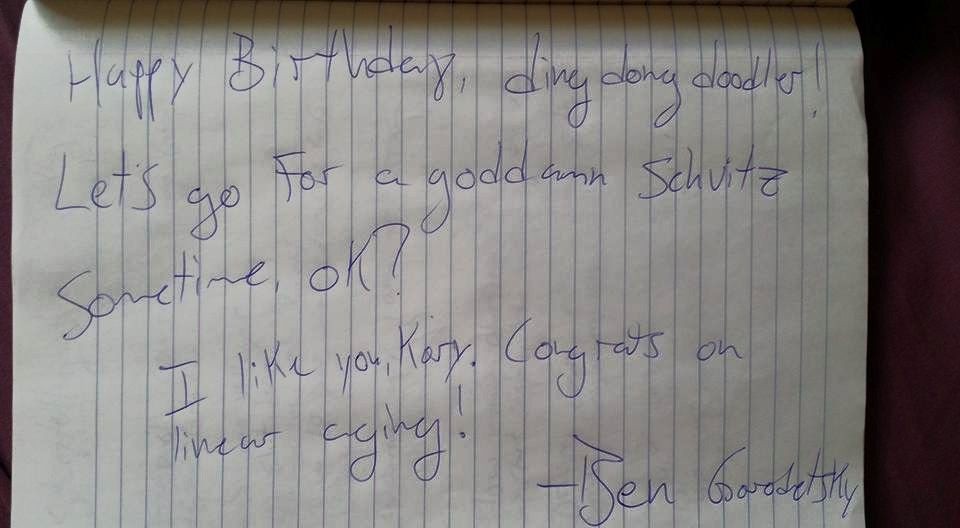 Happy Birthday, ding dong doodler!
Let's go for a goddamn Schvitz
Sometime, OK?
I like you, Kory. Congrats on
linear aging!
-Ben Gorodetsky